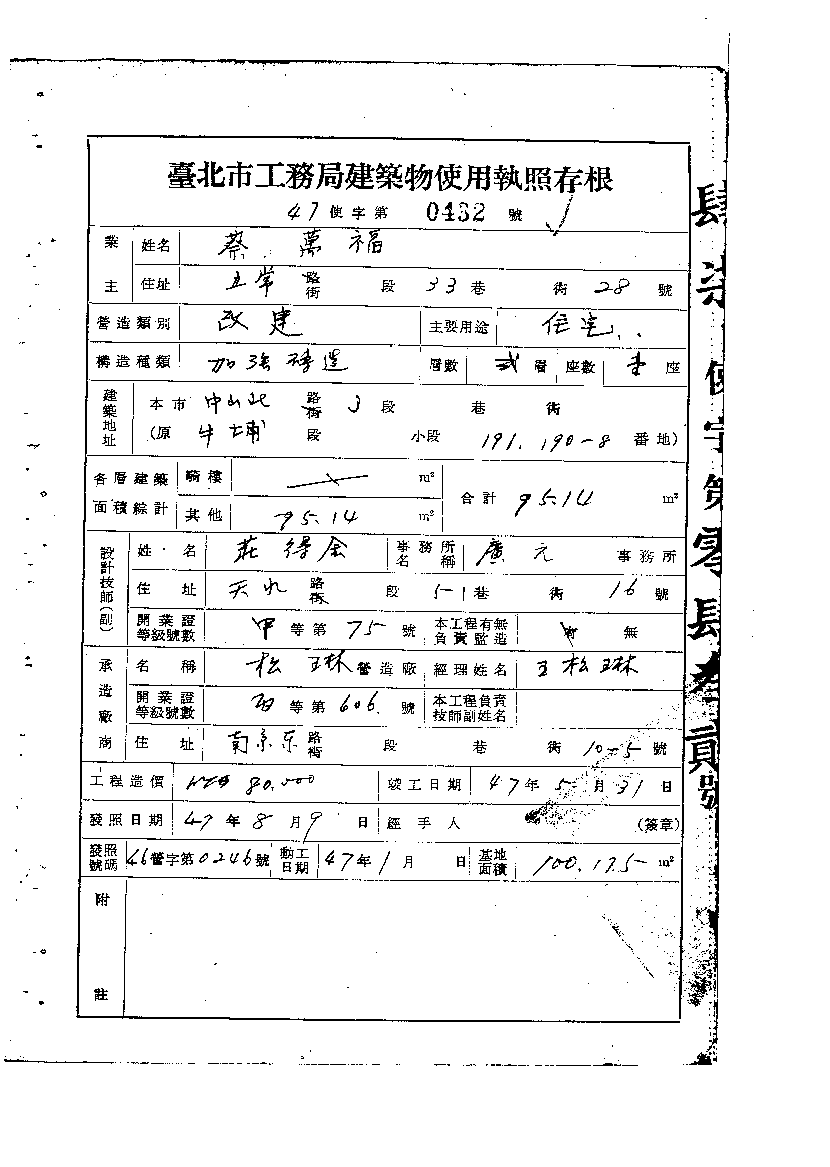 臺北市工務局建築物使用執照存根
47使字第 0432 號
業主 姓名 蔡萬福
住址 五常 路街 段 33巷 街 28 號
營造類別 改建 主要用途 住宅
構造種類 加強磚造 層數 弍層 座數 壹座
建築地址 本市 中山北 路街 3段 巷 街
(原 牛埔 段 小段 191.190-8 番地)
各層建築面積綜計 騎樓 m² 合計 95.14 m²
其他 95.14 m²
設計技師(副) 姓名 莊得全 事務所名稱 廣元 事務所
住址 天水 路街 段 51巷 街 16號
開業證等級號數 甲等第 75 號 本工程有無負責監造 有 無
承造廠商 名稱 松琳營造廠 經理姓名 王松琳
開業證等級號數 等第 606 號 本工程負責技師副姓名
住址 南京東 路街 段 巷 街 10-5號
工程造價 NT$ 80,000 竣工日期 47年5月31日
發照日期 47年8月9日 經手人 (簽章)
發照號碼 46營字第0246號 動工日期 47年1月 日 基地面積 100.175 m²
附註
肆柒使字第零肆叁貳號